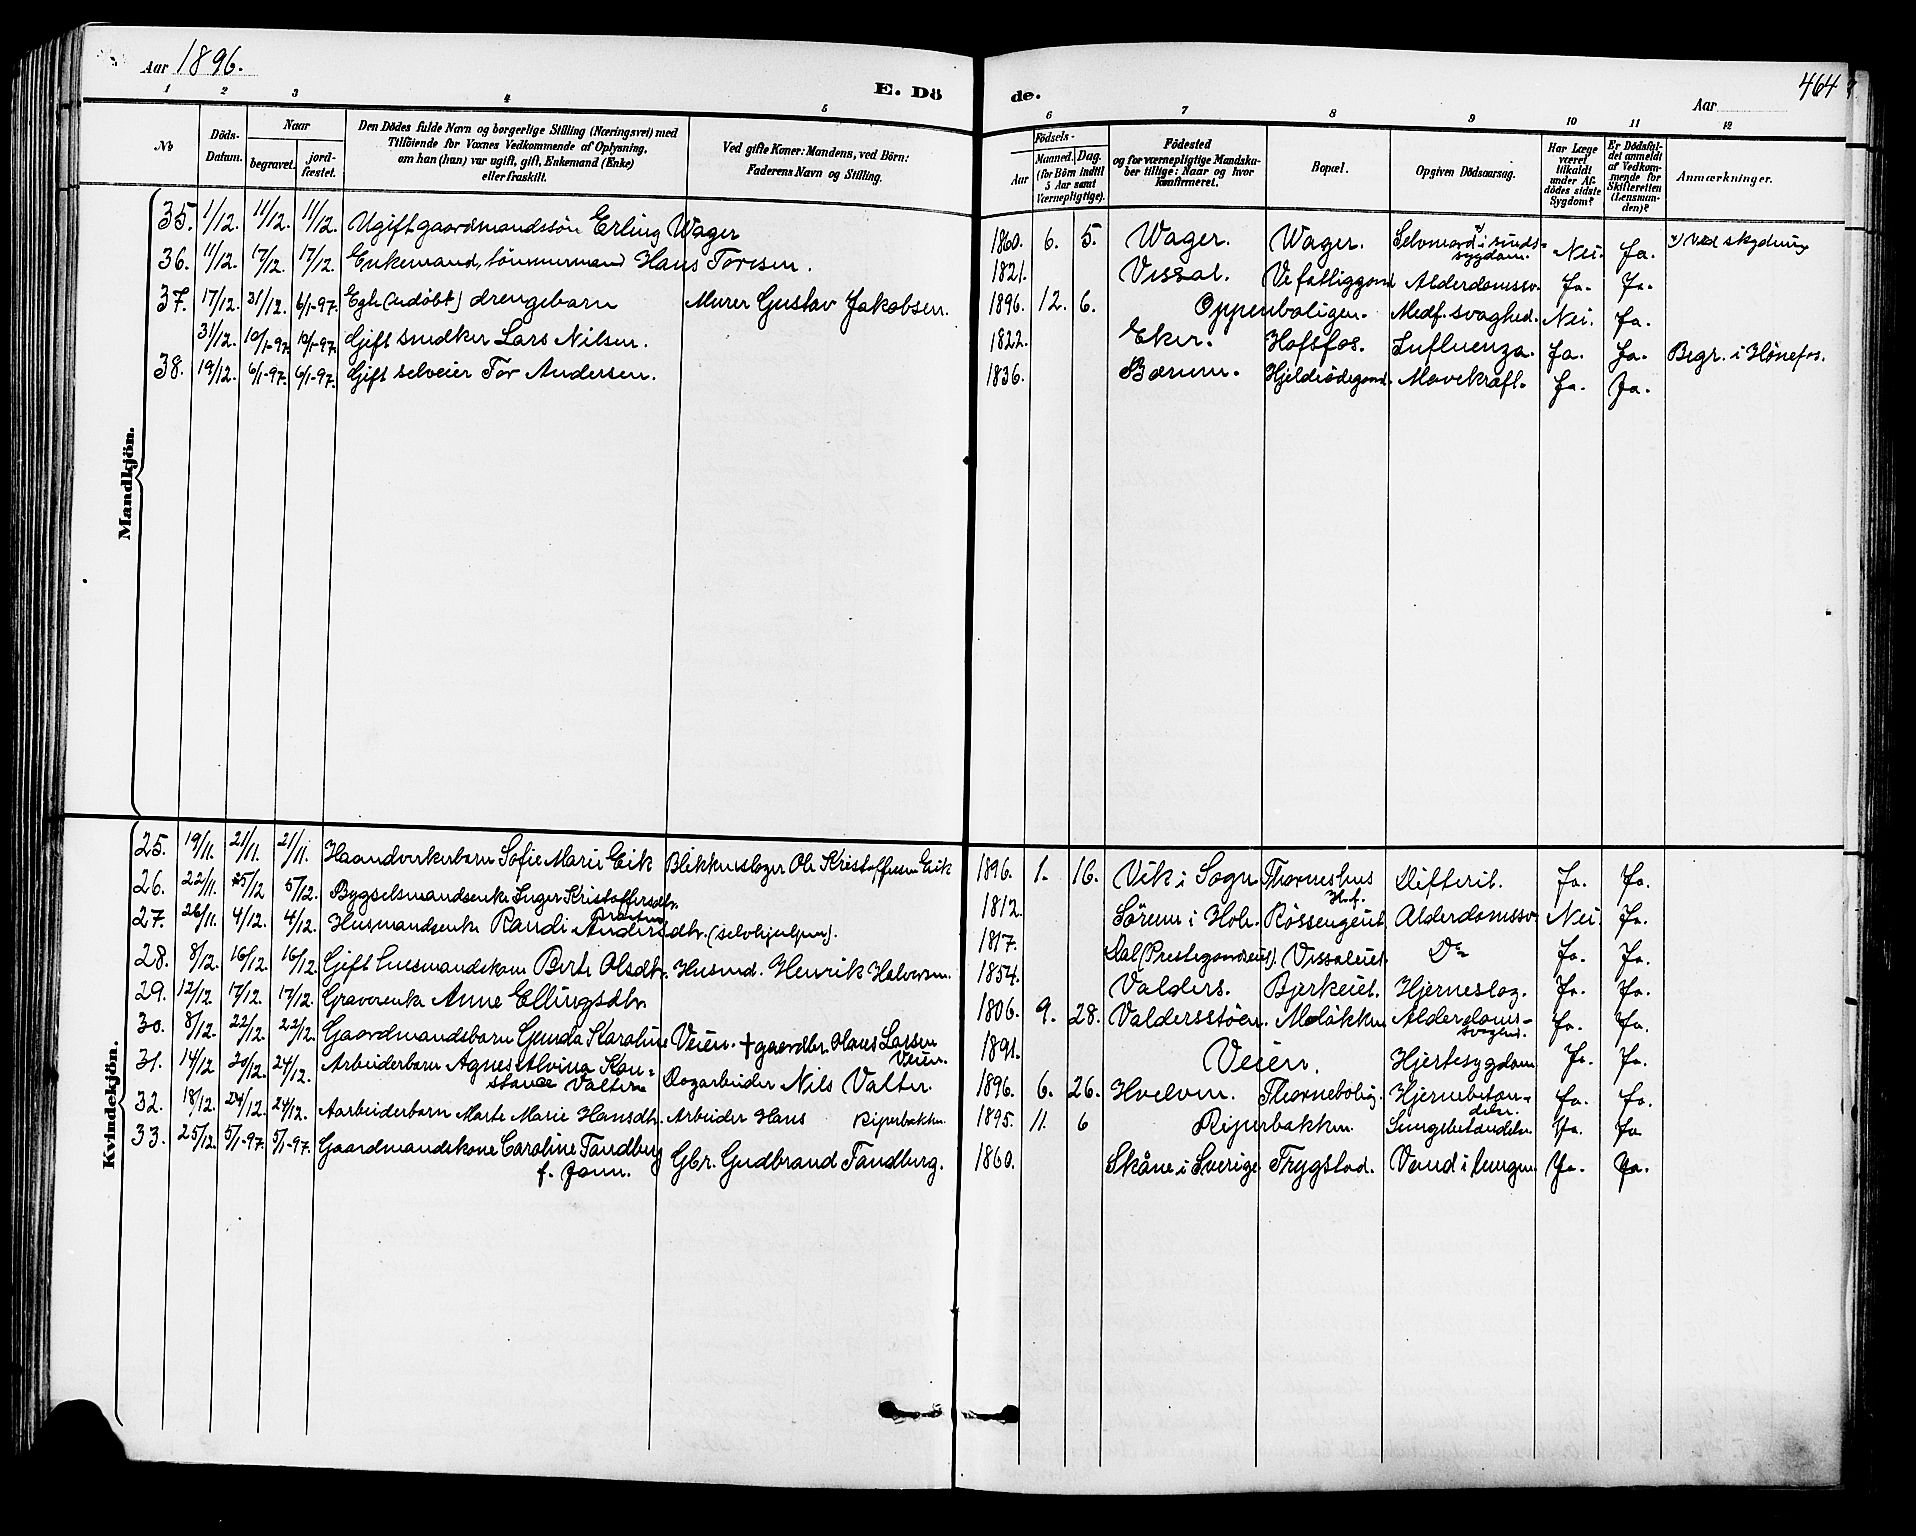 Aar 1896.
E. Dö
de.
Aar
464
1 2 3 4 5
6 7 8 9 10 11 12
No
Döds-Datum.
Naar
begravet.
jord-fæstet.
Den Dödes fulde Navn og borgerlige Stilling (Næringsvei) med
Tilföiende for Voxnes Vedkommende af Oplysning,
om han (hun) var ugift, gift, Enkemand (Enke)
eller fraskilt.
Ved gifte Koner: Mandens, ved Börn:
Faderens Navn og Stilling.
Födsels-
Aar
Maaned. Dag.
(for Börn indtil
5 Aar samt
Værnepligtige).
Födested
og for værnepligtige Mandska-
ber tillige: Naar og hvor
konfirmeret.
Bopæl.
Opgiven Dödsaarsag.
Har Læge
været
tilkaldt
under Af-
dödes sidste
Sygdom?
Er Dödsfal-
det anmeldt
af Vedkom-
mende for
Skifteretten
(Lensman-
den)?
Anmærkninger.
Mandkjön.
35. 1/12. 11/12. 11/12. Ugift gaardmandssön Erling Wager 1860. 6. 5. Wager. Wager. Selvmord i sinds-
sygdom. Nei. Ja. Ved skydning
36. 11/12. 17/12. 17/12. Enkemand, tömmermand Hans Toresen. 1821. Vessal. Ve fattiggaard Alderdomssv. Ja. Ja.
37. 17/12. 31/12. 6/1-97. Egte (udöbt) drengebarn Murer Gustav Jakobsen. 1896. 12. 6. Oppenboligen. Medf. svaghed. Nei. Ja.
31/12. 10/1-97. 10/1-97. Gift snedker Lars Nilsen. 1822. Eker. Hofsfos. Influenza. Ja. Ja. Begr. i Hönefos.
38. 19/12. 6/1-97. 6/1-97. Gift selveier Tor Andersen. 1836. Bærum. Mavekræft. Ja. Ja.
Kvindekjön.
25. 19/11. 21/11. 21/11. Haandverkerbarn Sofie Marie Eik Blikkenslager Ole Kristoffersen Eik 1896. 1. 16. Vik i Sogn Thorneshus Difterit. Ja. Ja.
Hof.
26. 22/11. 5/12 5/12. Bygselmandsenke Inger Kristoffersdtr. 1812. Sörum i Hole. Røssengeiet. Alderdomssv. Nei. Ja.
27. 26/11. 4/12. 4/12. Husmandsenke Randi Andersdtr. (selvhjulpen). 1817. Dal (Prestegaardseiet). Vessaleiet. Do Ja. Ja.
28. 8/12. 16/12. 16/12. Gift husmandskone Berte Olsdtr. Husmd. Henrik Halvorsen. 1854. Valders. Bjerkeiet. Hjerneslag. Ja. Ja.
29. 12/12. 17/12. 17/12. Graverenke Anne Ellingsdtr 1806. 9. 28. Valdersstöen. Moløkken Alderdoms-
svaghed. Ja. Ja.
30. 8/12. 22/12. 22/12. Gaardmandsbarn Gunda Karoline Veien. + gaardbr. Hans Larsen
Veien. 1891. Veien. Hjertesygdom Ja. Ja.
31. 14/12 20/12. 24/12. Arbeiderbarn Agnes Alvina Kon-
stance Valter Dagarbeider Nils Valter. 1896. 6. 26. Hvelven. Thornebolig. Hjernebetæn-
delse. Ja. Ja.
32. 18/12. 24/12. 24/12. Aarbeiderbarn Marte Marie Hansdtr. Arbeider Hans Piperbakken. 1895. 11. 6 Piperbakken. Lungebetændelse Ja. Ja
33. 25/12. 5/1-97. 5/1-97. Gaardmandskone Caroline Tandberg
f. Jønn. Gbr. Gudbrand Tandberg. 1860. Skåne i Sverige Trygstad. Vand i lungen Ja. Ja.